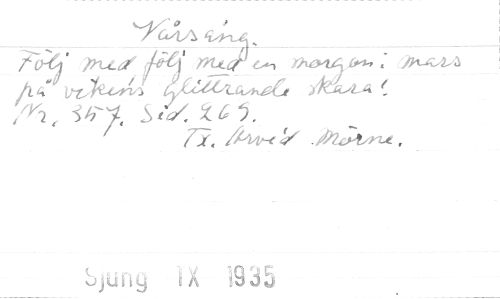 Vårsång.
Följ med följ med en morgon i mars
på vikens glittrande skara!
Nr. 357. Sid. 269.
Tx. Arvid Mörne.
Sjung IX 1935